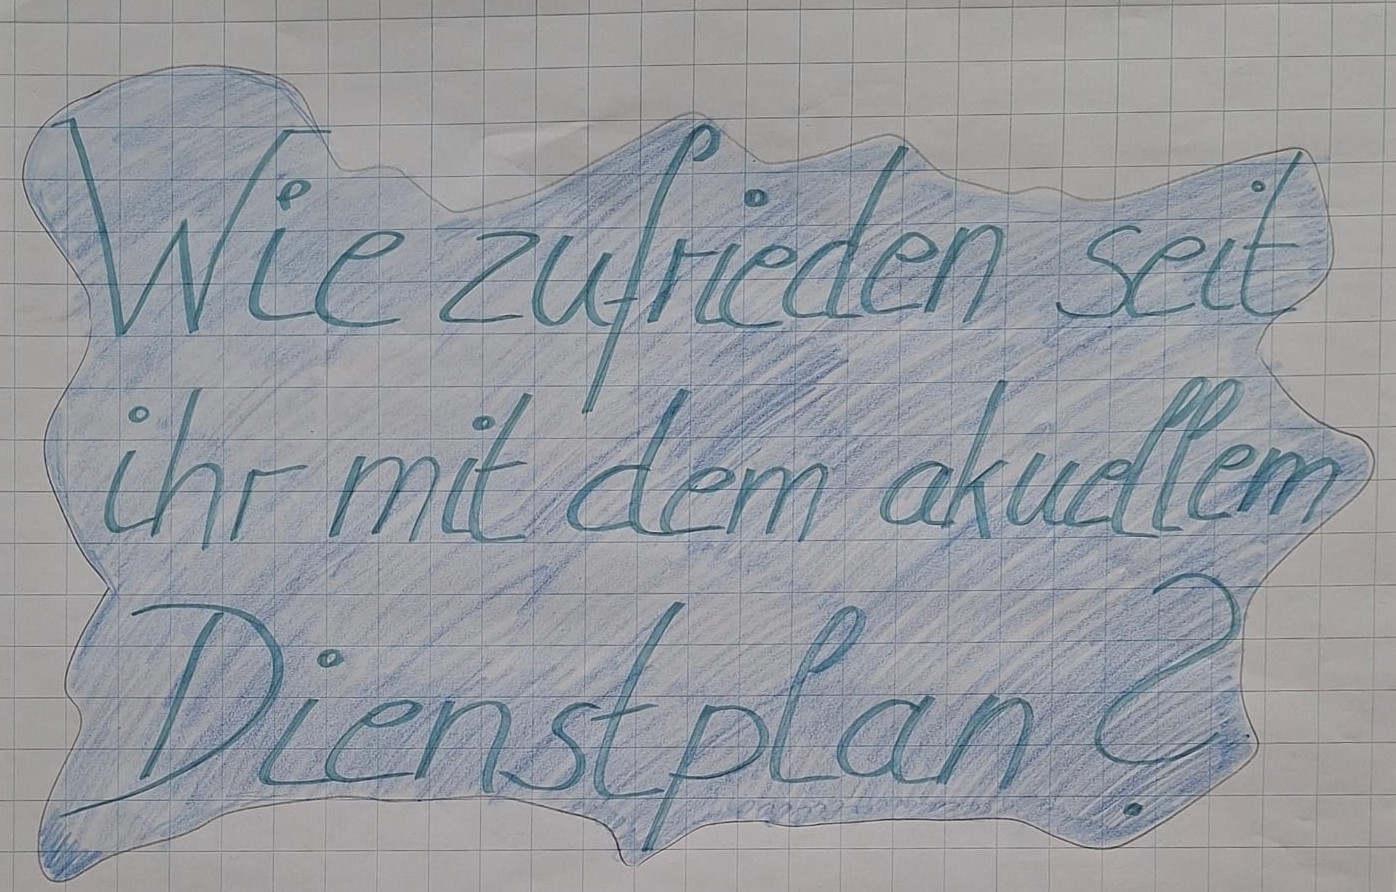 Wie zufrieden seit
ihr mit dem akuellem
Dienstplan?